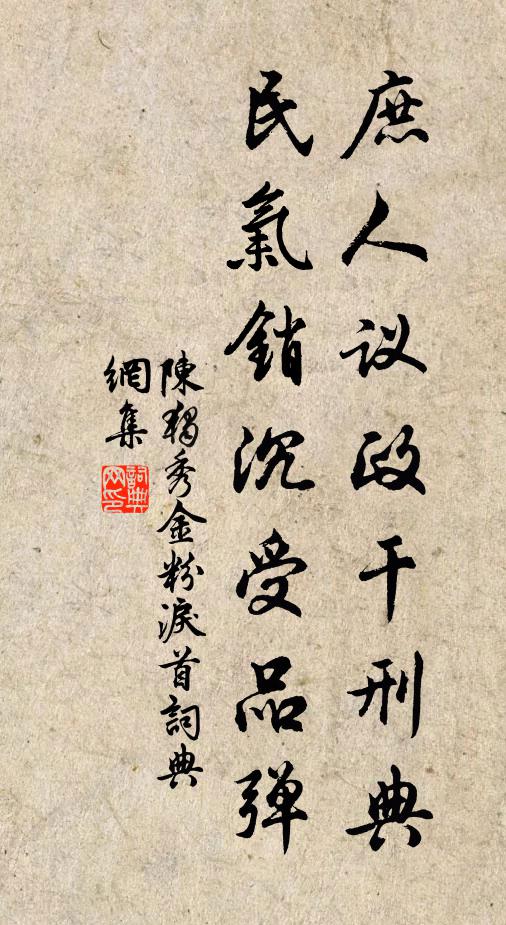 庶人议政干刑典
民氣銷沉受品弹
陳獨秀金粉淚首詞典
網集
詞典
网印